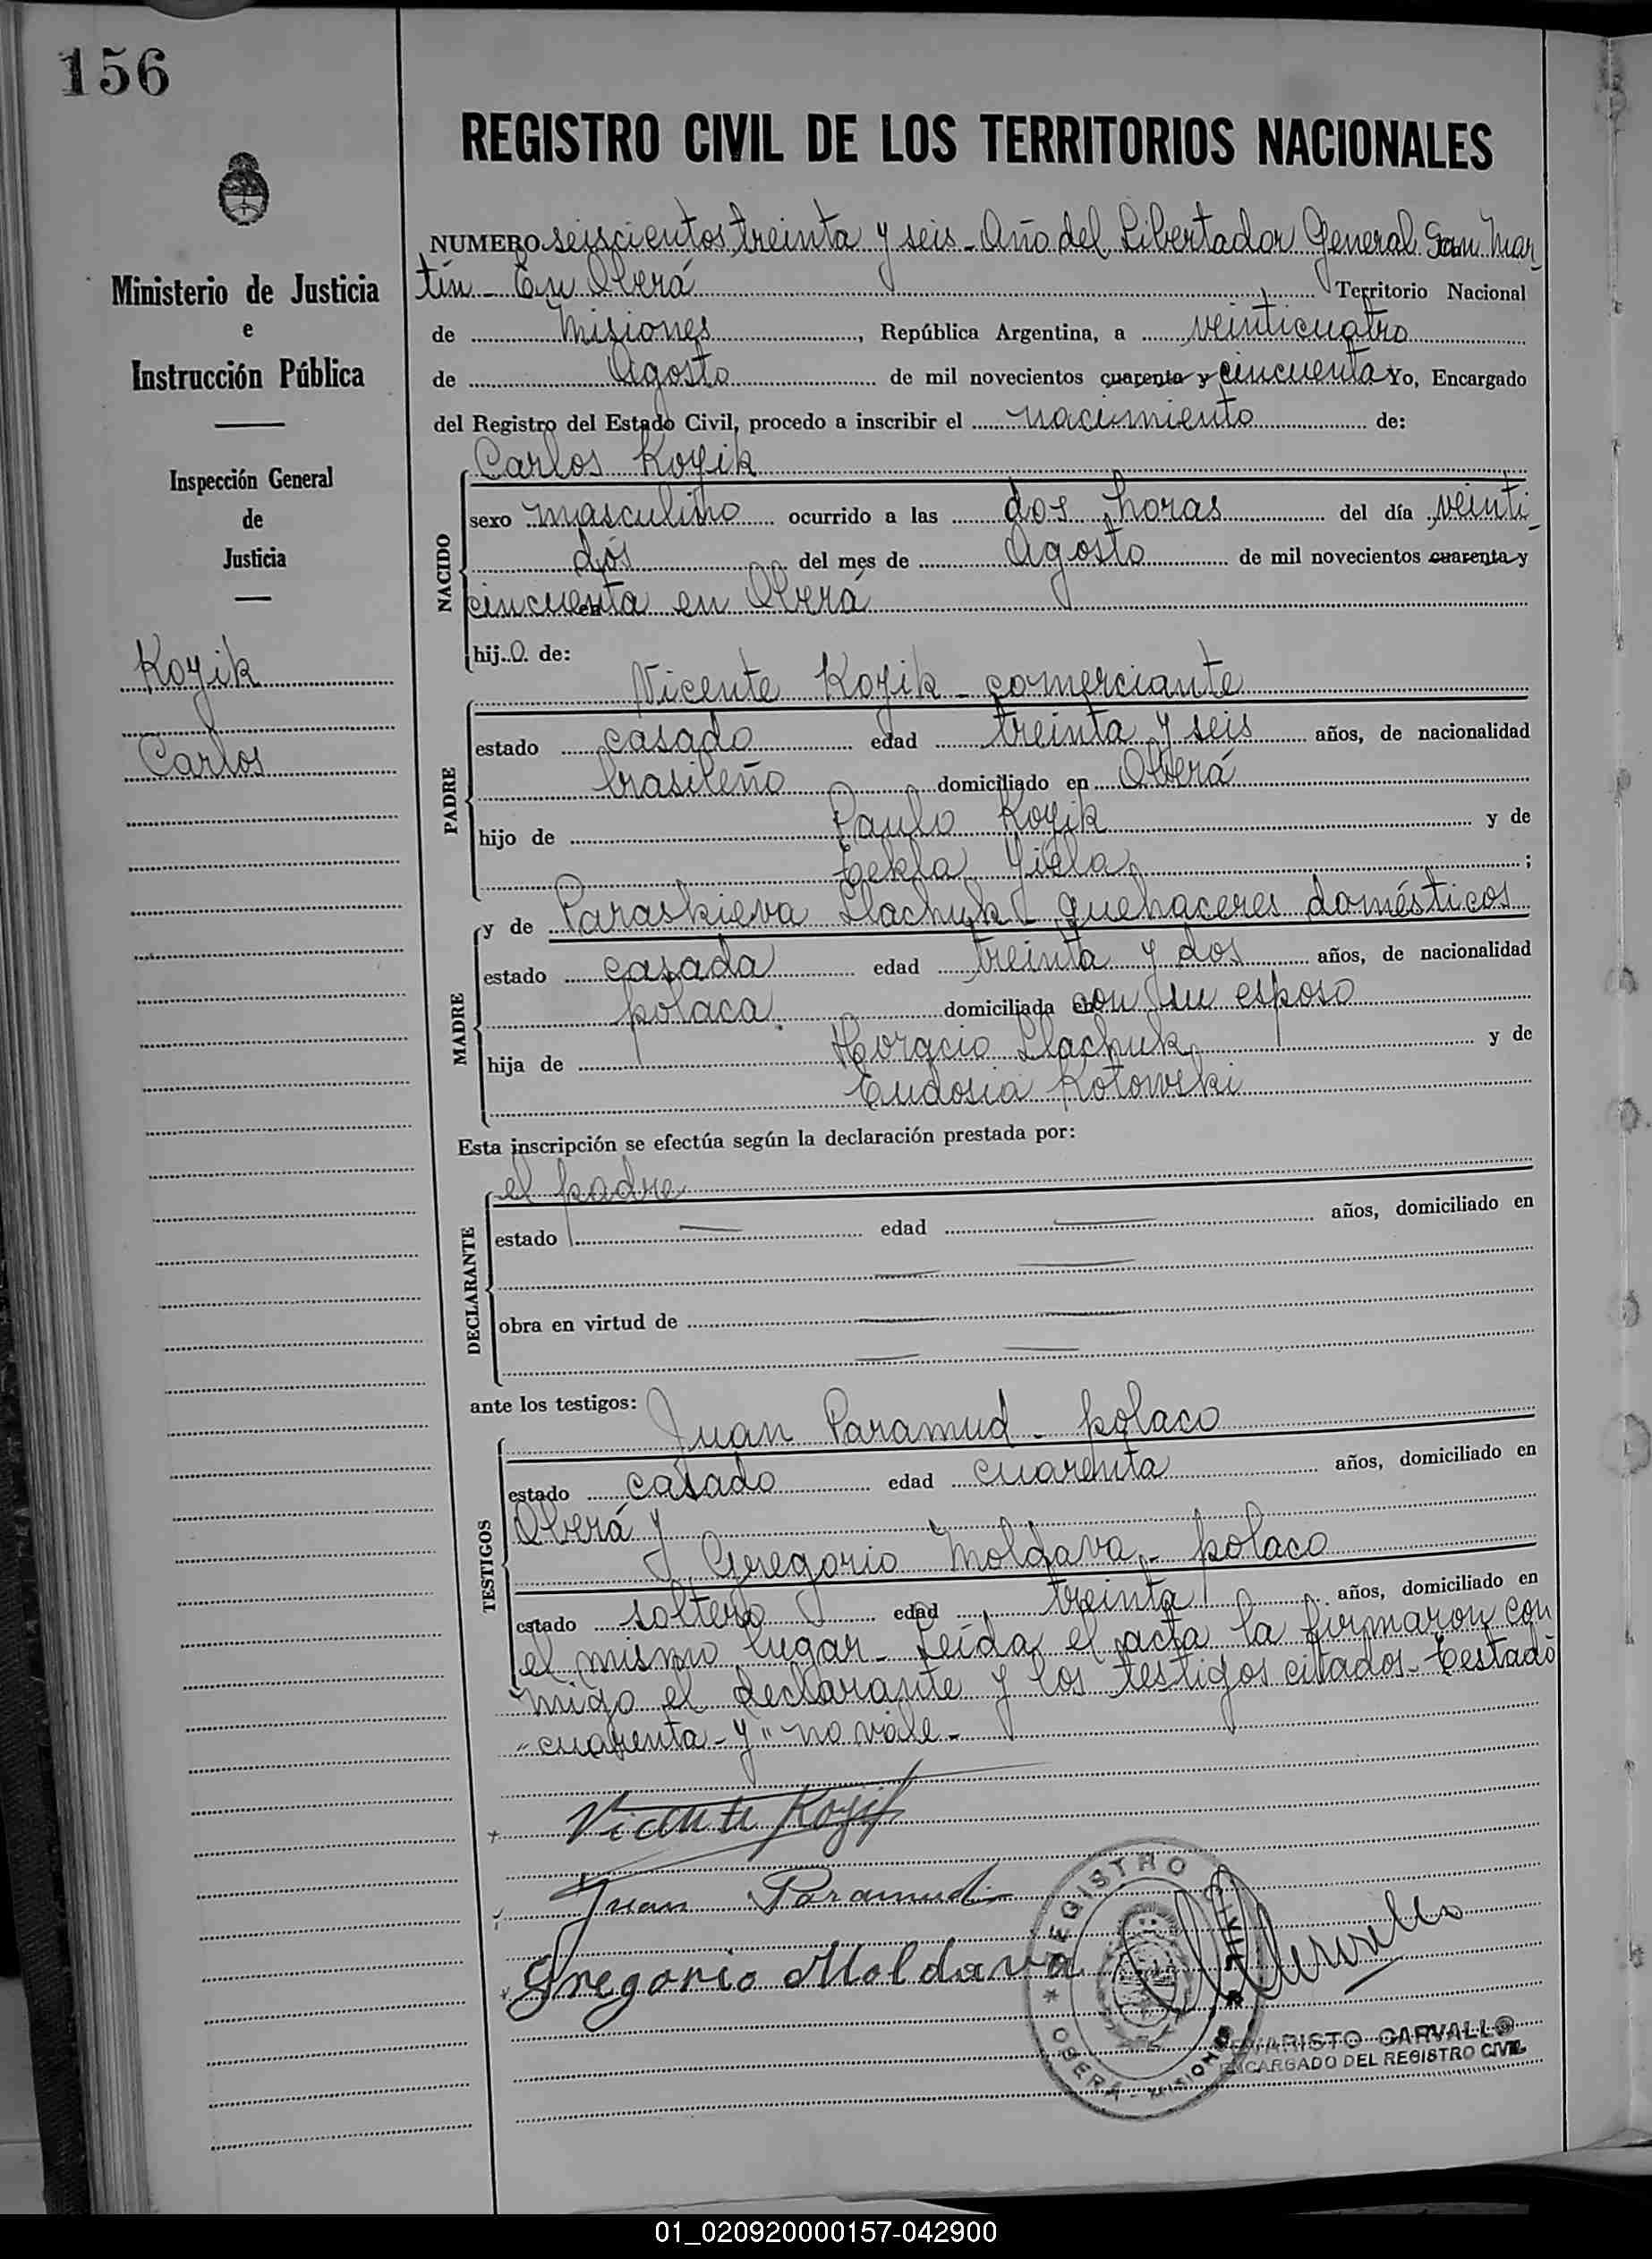 156
REGISTRO CIVIL DE LOS TERRITORIOS NACIONALES
NUMERO seiscientos treinta y seis - Año del Libertador General San Mar-
tín - En Oberá Territorio Nacional
de Misiones, República Argentina, a veinticuatro
de Agosto de mil novecientos cuarenta y cincuenta Yo, Encargado
del Registro del Estado Civil, procedo a inscribir el nacimiento de:
Ministerio de Justicia
e
Instrucción Pública
Inspección General
de
Justicia
Koyik
Carlos
NACIDO
Carlos Koyik
sexo masculino ocurrido a las dos horas del día veinti-
dós del mes de Agosto de mil novecientos cuarenta y
cincuenta en Oberá
hijo de:
PADRE
Vicente Koyik - comerciante
estado casado edad treinta y seis años, de nacionalidad
brasileño domiciliado en Oberá
hijo de Paulo Koyik y de
Tekla ;
MADRE
y de Paraskieva Llachuk - quehaceres domésticos
estado casada edad treinta y dos años, de nacionalidad
polaca domiciliada con su esposo
hija de Horacio Llachuk y de
Eudosia Kotowski
Esta inscripción se efectúa según la declaración prestada por:
DECLARANTE
el padre
estado edad años, domiciliado en
obra en virtud de
ante los testigos:
TESTIGOS
Juan Paramud - polaco
estado casado edad cuarenta años, domiciliado en
Oberá y
Gregorio Moldava - polaco
estado soltero edad treinta años, domiciliado en
el mismo lugar - Leída el acta la firmaron con
migo el declarante y los testigos citados - Testado
"cuarenta - y" no vale -
Vicente Koyik
Juan Paramud
Gregorio Moldava
REGISTRO CIVIL
OBERÁ - MISIONES
EVARISTO CARVALLO
ENCARGADO DEL REGISTRO CIVIL
01_020920000157-042900